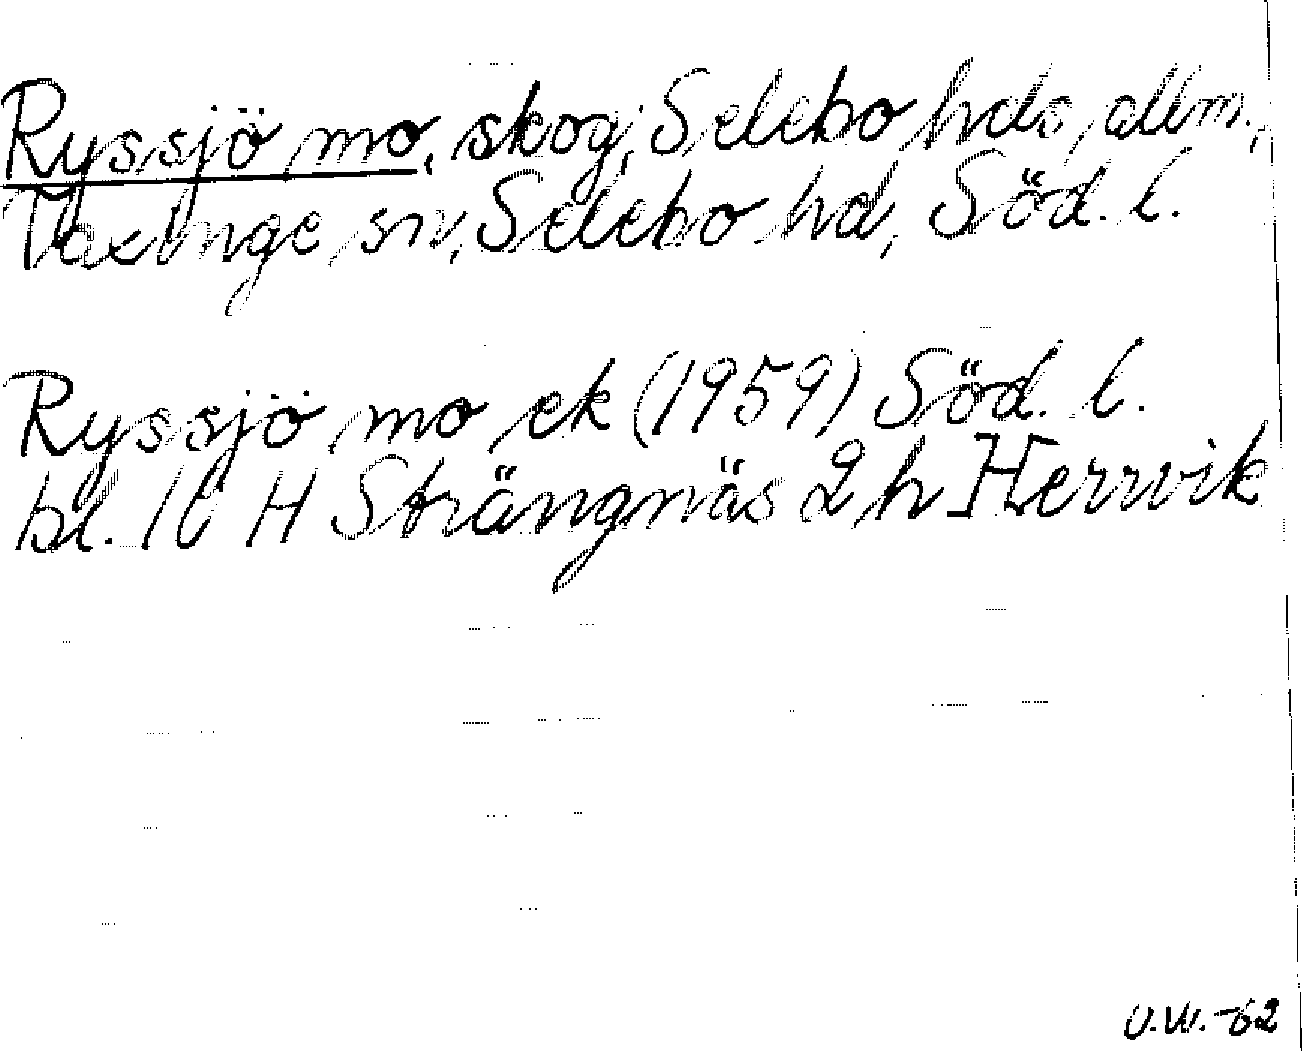 Ryssjö mo, skog, Selebo hds allm.,
Taxinge sn, Selebo hd, Söd. l.
Ryssjö mo ek (1959) Söd. l.
bl. 10 H Strängnäs 2 h Herrvik
U.W. -62